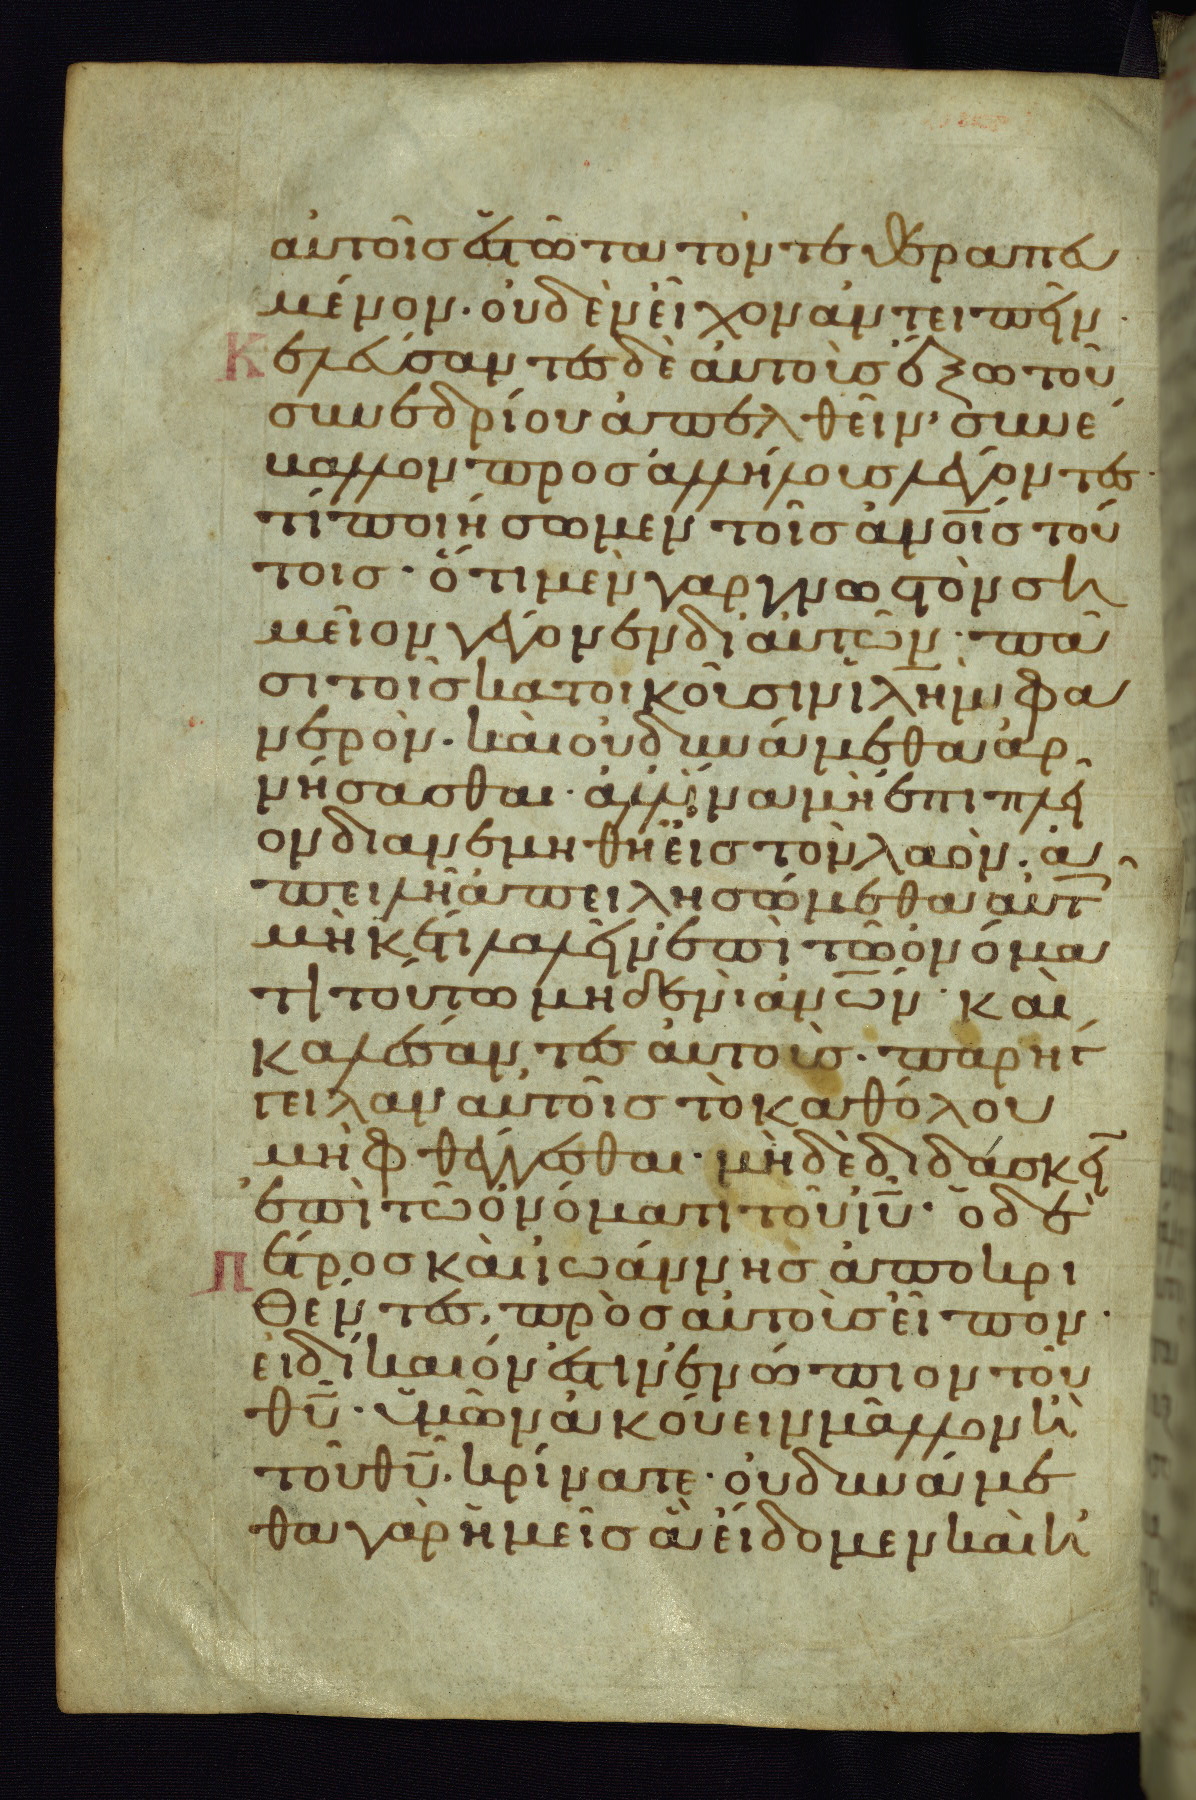 αὐτοῖσ ἑστῶτα τὸν τεθεραπευ
μένον· οὐδὲν εἶχον ἀντειπεῖν·
Κελεύσαντες δὲ αὐτοὺσ ἔξω τοῦ
συνεδρίου ἀπελθεῖν, συνέ
βαλλον προσ ἀλλήλουσ λέγοντεσ·
τί ποιήσωμεν τοῖσ ἀνοῖσ τού
τοισ· ὅτι μὲν γαρ γνωστὸν ση
μεῖον γέγονεν δι αὐτῶν· πᾶ
σι τοῖσ κατοικοῦσιν ϊλημ φα
νερὸν· καὶ οὐ δυνάμεθα ἀρ
νήσασθαι· ἀλλ ἵνα μὴ ἐπι πλεῖ
ον διανεμηθῆ εἰσ τὸν λαὸν· ἀ
πειλῆ ἀπειλησώμεθα αὐτ
μὴκέτι λαλεῖν ἐπὶ τῶ ὀνόμα
τι τούτω μηδενὶ ἀνῶν· καὶ
καλέσαντεσ αὐτοὺσ· παρήγ
γειλαν αὐτοῖσ τὸ καθόλου
μὴ φθέγγεσθαι· μὴδὲ διδάσκειν
ἐπὶ τῶ ὀνόματι τοῦ ιυ· ὁ δὲ
Πέτροσ καὶ ἰωάννησ ἀποκρι
θέντεσ, πρὸσ αὐτοὺσ εἶπον·
εἰ δίκαιόν ἐστιν ἐνώπιον τοῦ
θυ· ὑμῶν ἀκούειν μᾶλλον ἢ
τοῦ θυ· κρίνατε· οὐ δυνάμε
θα γὰρ ἡμεῖσ ἃ εἴδομεν καὶ ἠ